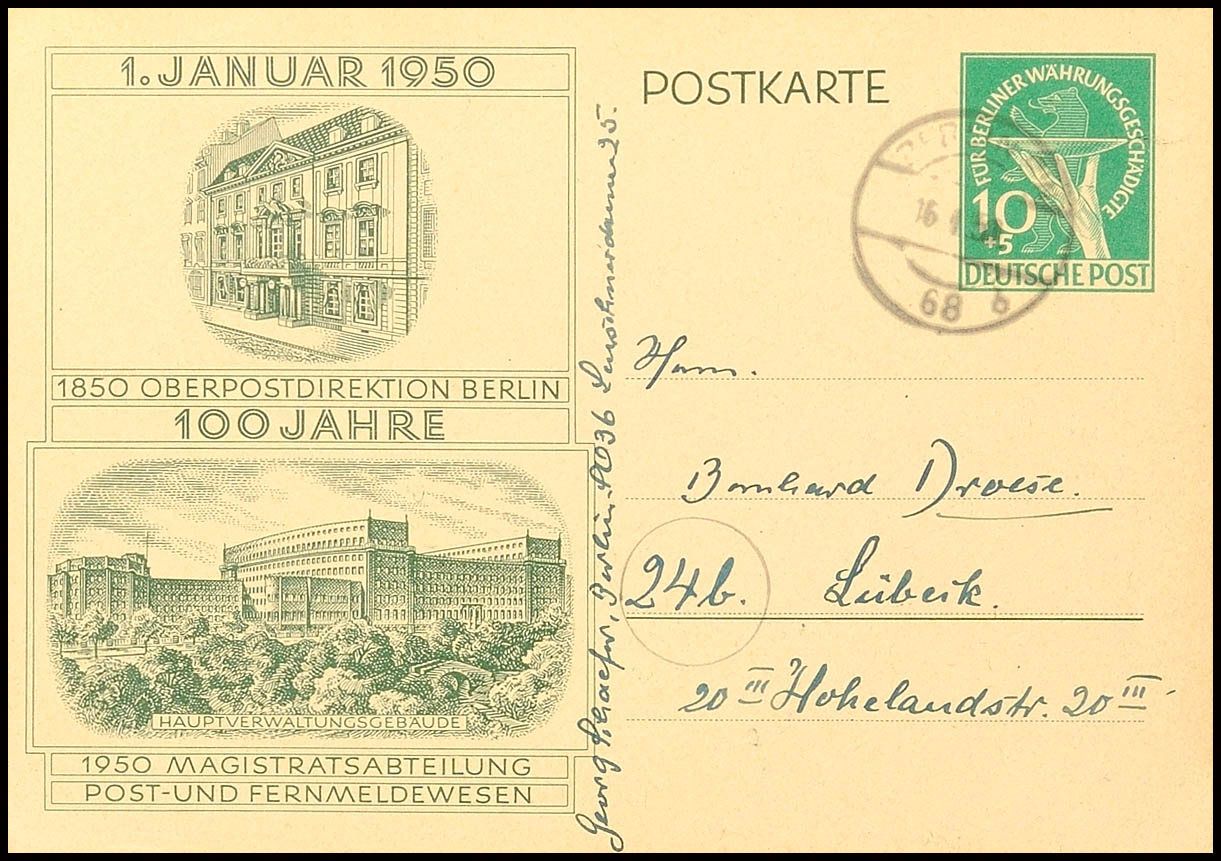 1. JANUAR 1950
1850 OBERPOSTDIREKTION BERLIN
100 JAHRE
HAUPTVERWALTUNGSGEBÄUDE
1950 MAGISTRATSABTEILUNG
POST-UND FERNMELDEWESEN
Georg Schaefer, Berlin-SO36 25.
POSTKARTE
FÜR BERLINER WÄHRUNGSGESCHÄDIGTE
10
+5
DEUTSCHE POST
68 b
Herrn.
Bernhard Droese.
24b. Lübeck.
20 III Hohelandstr. 20 III